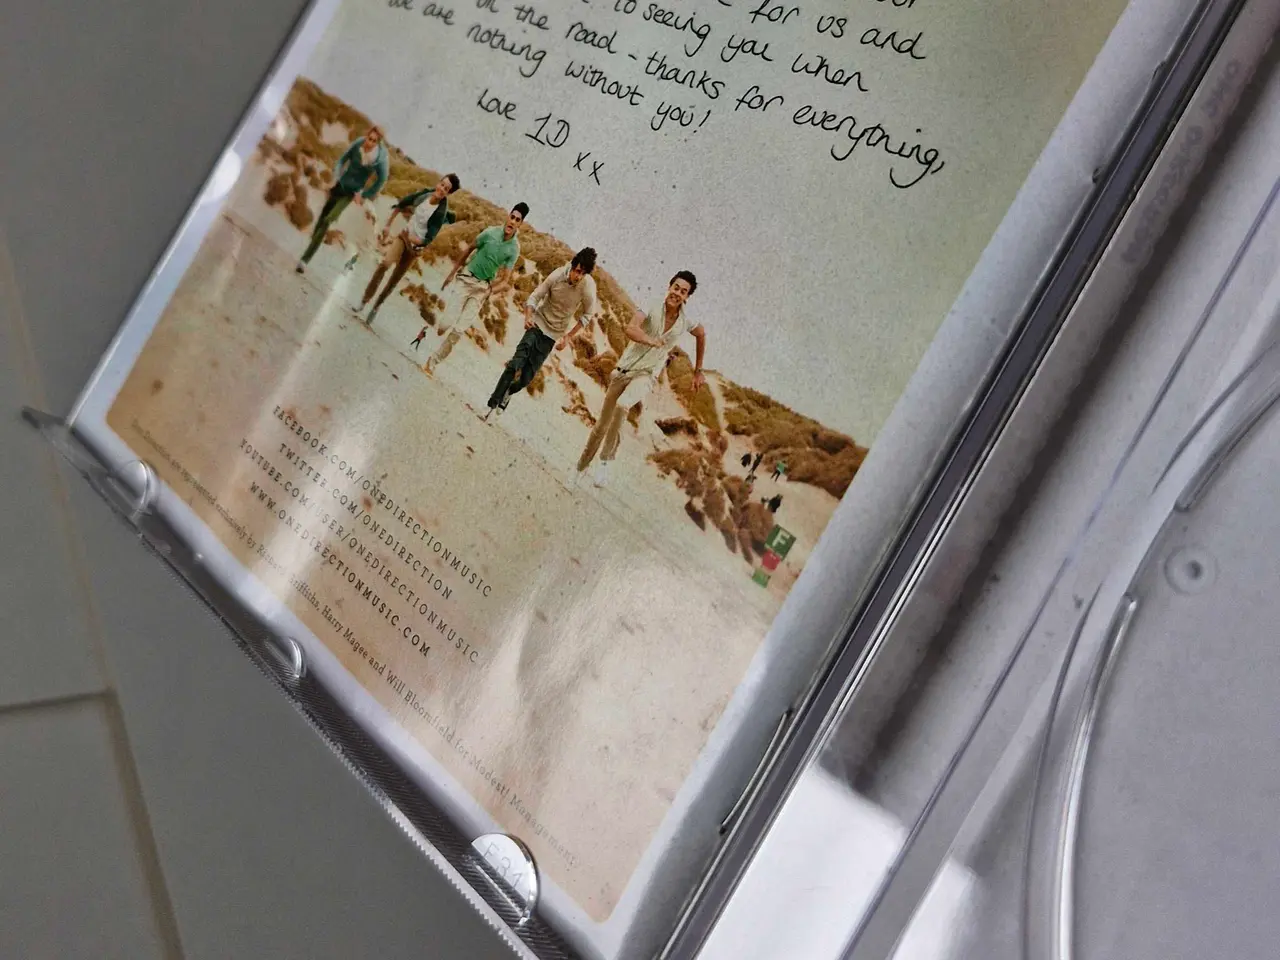 for us and
to seeing you when
on the road - thanks for everything,
we are nothing without you!
Love 1D xx
F
FACEBOOK.COM/ONEDIRECTIONMUSIC
TWITTER.COM/ONEDIRECTION
YOUTUBE.COM/USER/ONEDIRECTIONMUSIC
WWW.ONEDIRECTIONMUSIC.COM
One Direction are represented exclusively by Richard Griffiths, Harry Magee and Will Bloomfield for Modest! Management.